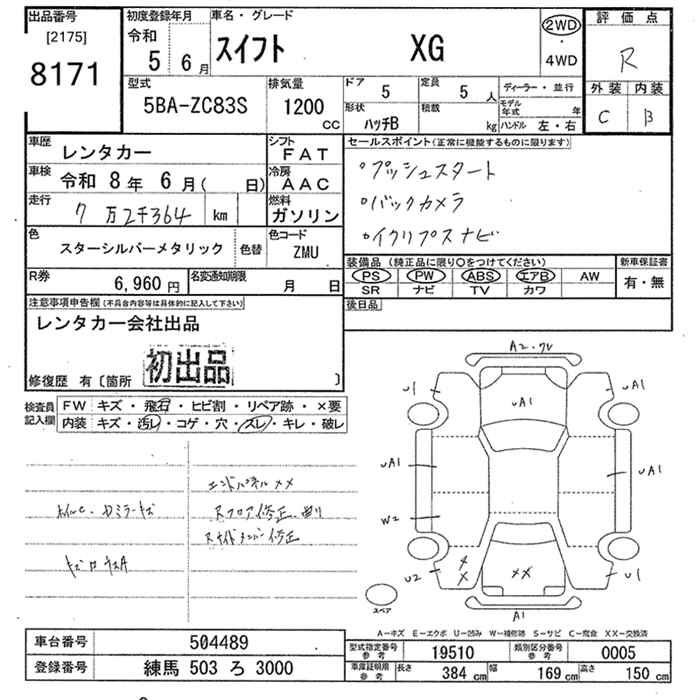 出品番号
[2175]
8171
初度登録年月
令和
5 6月
車名・グレード
スイフト XG
2WD
・
4WD
評価点
R
外装 内装
C B
型式
5BA-ZC83S
排気量
1200
CC
ドア
5
定員
5 人
形状
ハッチB
積載
kg
ディーラー・並行
モデル年式 年
ハンドル 左・右
車歴
レンタカー
シフト
FAT
車検
令和 8年 6月( 日)
冷房
AAC
走行
7万2千364 km
燃料
ガソリン
色
スターシルバーメタリック
色替
色コード
ZMU
R券
6,960円
名変通知期限
月 日
セールスポイント(正常に機能するものに限ります)
・プッシュスタート
・バックカメラ
・イクリプスナビ
装備品(純正品に限り〇をつけてください)
PS PW ABS エアB AW
SR ナビ TV カワ
新車保証書
有・無
後日品
注意事項申告欄(不具合内容等は具体的に記入して下さい)
レンタカー会社出品
初出品
修復歴 有〔箇所 〕
検査員記入欄
FW キズ・飛石・ヒビ割・リペア跡・×要
内装 キズ・汚レ・コゲ・穴・スレ・キレ・破レ
エンドパネル××
Rフロア修正、曲り
Rサイドメンバー修正
A2・ワレ
U1
UA1
UA1
UA1
UA1
W2
U2
×
×
××
U1
A1
スペア
A-キズ E-エクボ U-凹み W-補修跡 S-サビ C-腐食 XX-交換済
車台番号 504489
登録番号 練馬 503 ろ 3000
型式指定番号
参考
19510
類別区分番号
参考
0005
車庫証明用
参考
長さ 384 cm
幅 169 cm
高さ 150 cm